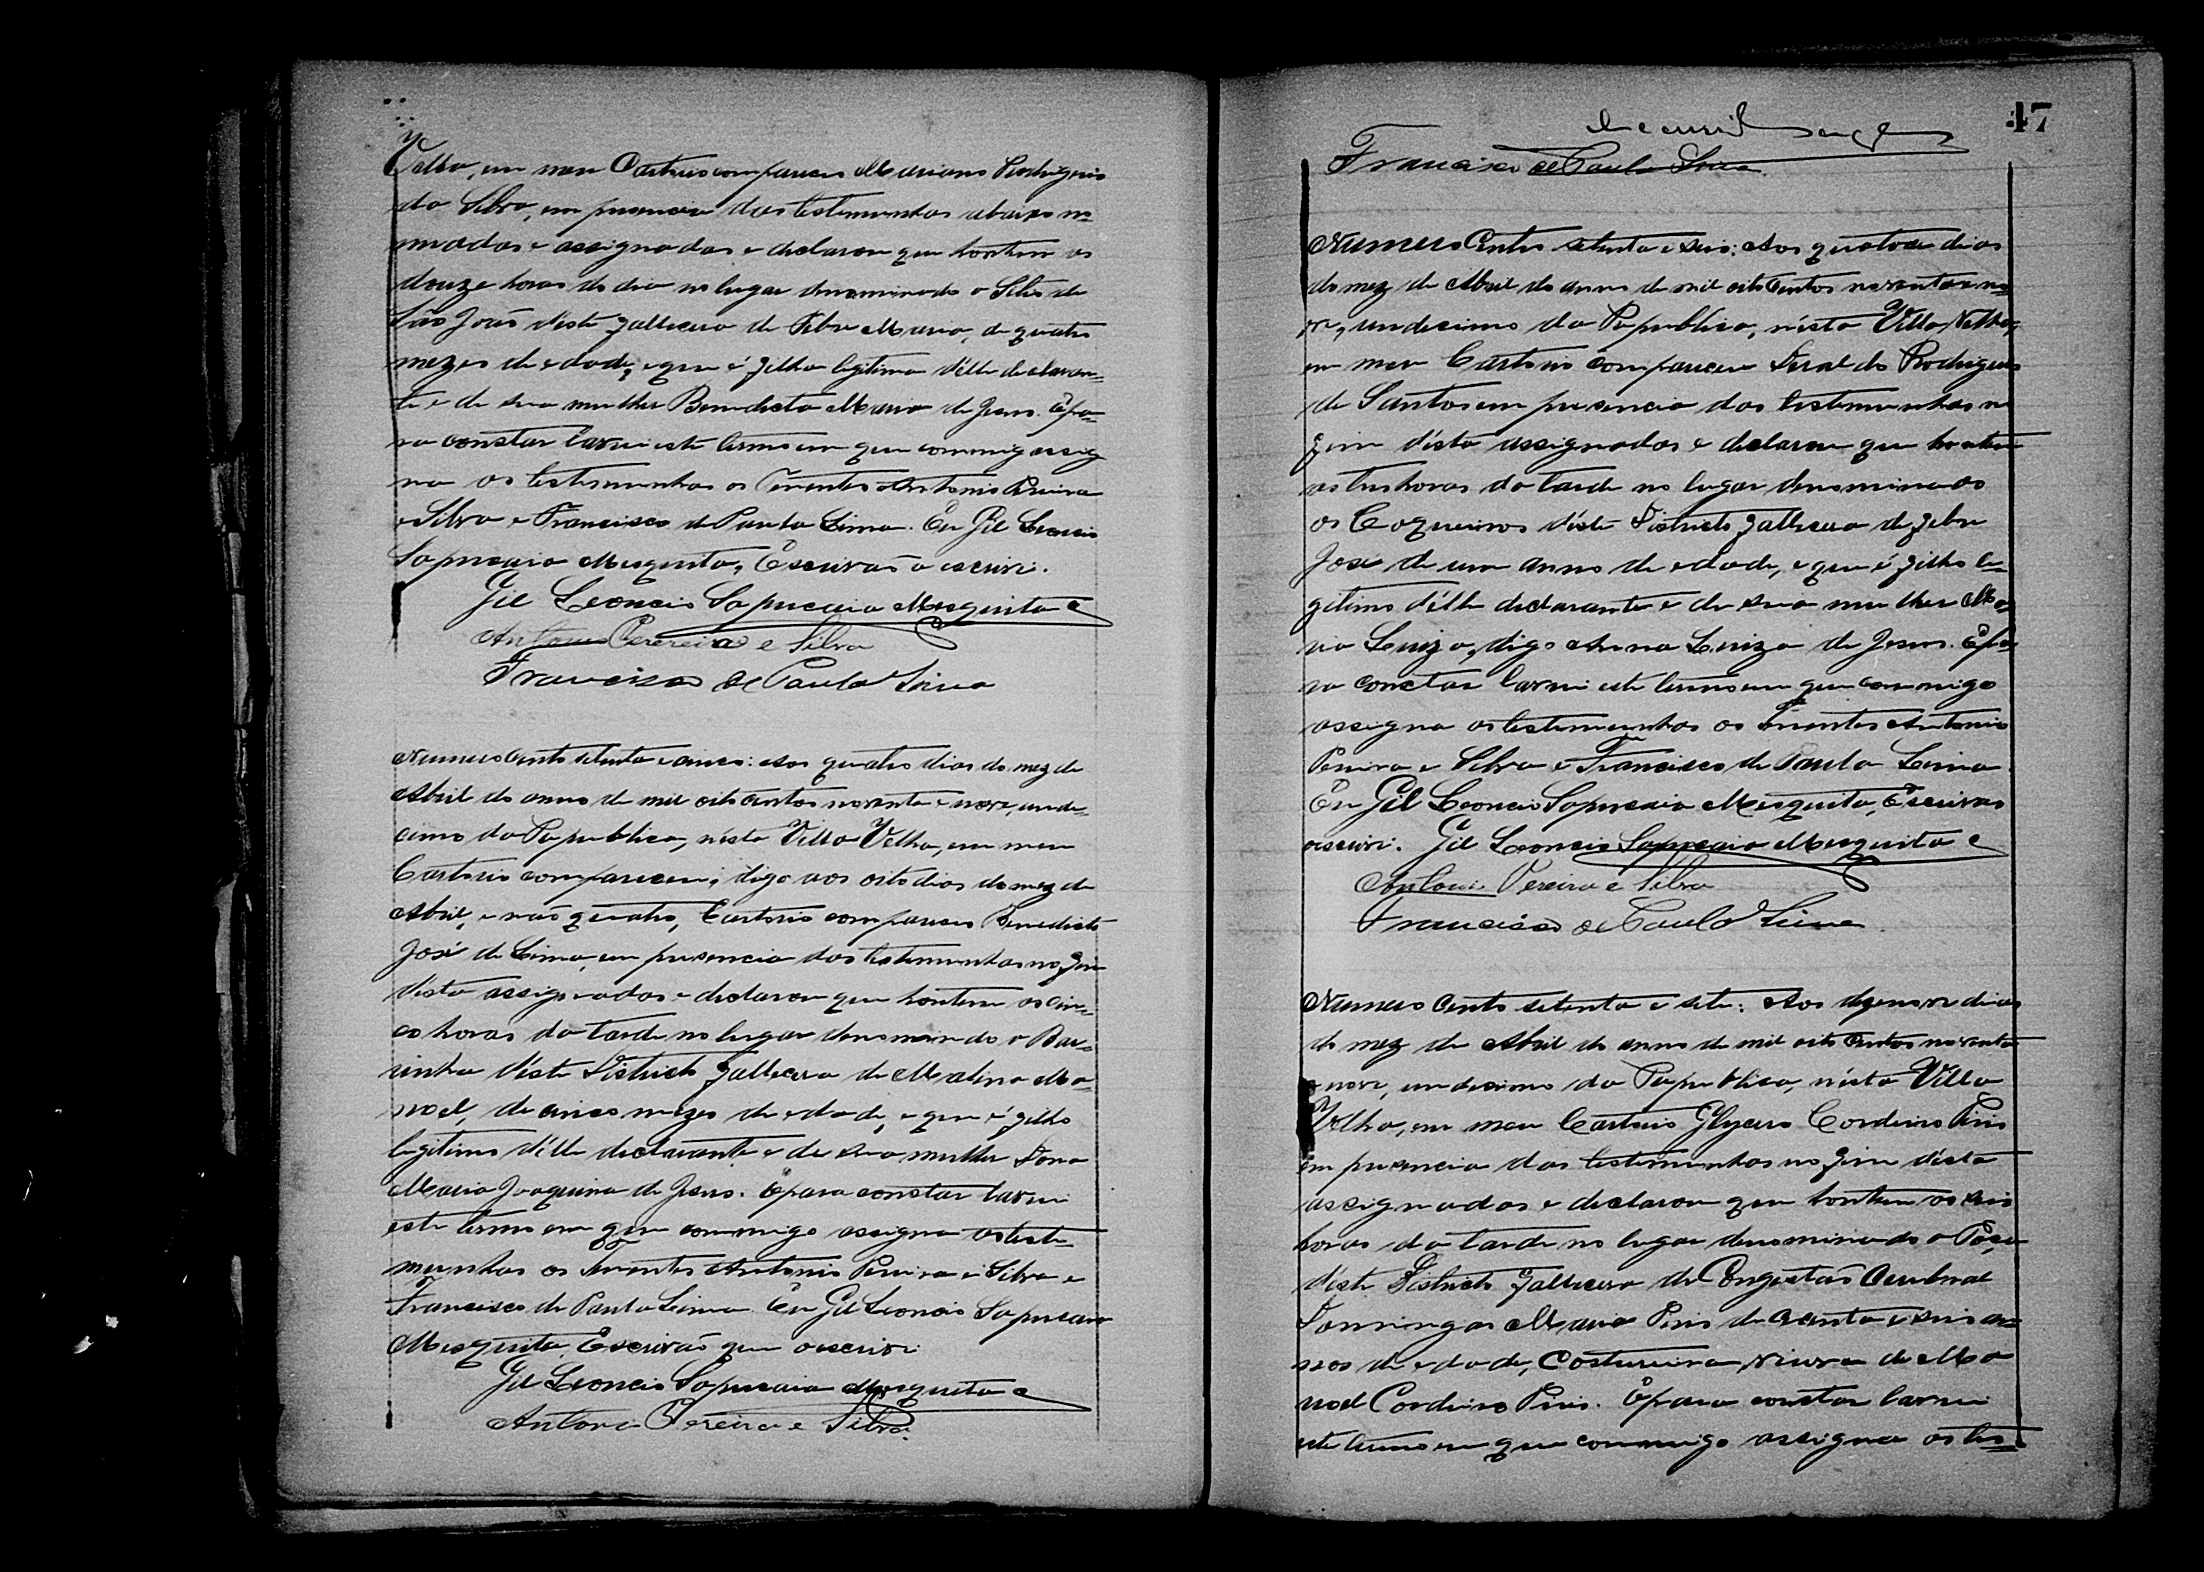 Velha, em meu Cartorio compareceu Mariano Rodrigues
da Silva, em presencia das testemunhas abaixo no-
meadas e assignadas e declarou que hontem as
douze horas do dia no lugar denominado o Sitio de
São João d'este falleceu de febre Maria, de quatro
mezes de edade, e que é filha legitima d'elle declaran-
te e de sua mulher Benedicta Maria de Jesus. E pa-
ra constar lavrei este termo em que commigo assig
na as testemunhas os Tenentes Antonio Pereira
e Silva e Francisco de Paula Lima. Eu Gil Leoncio
Sapucaia Mesquita, Escrivão o escrivi.
Gil Leoncio Sapucaia Mesquita
Antonio Pereira e Silva
Francisco de Paula Lima
Numero Cento setenta e cinco: Aos quatro dias do mez de
Abril do anno de mil oito centos noventa e nove, unde-
cimo da Republica, nésta Villa Velha, em meu
Cartorio compareceu, digo aos oito dias do mez de
Abril, e não quatro, Cartorio compareceu Benedicto
José de Lima, em presencia das testemunhas no fim
désta assignadas e declarou que hontem as cin-
co horas da tarde no lugar denominado o Bar-
rinha déste Districto falleceu de Malina Ma-
noel, de cinco mezes de edade, e que é filho
legitimo d'élle declarante e de sua mulher Dona
Maria Joaquina de Jesus. E para constar lavrei
este termo em que commigo assigna as teste-
munhas os Tenentes Antonio Pereira e Silva e
Francisco de Paula Lima. Eu Gil Leoncio Sapucaia
Mesquita, Escrivão que o escrivi
Gil Leoncio Sapucaia Mesquita
Antonio Pereira e Silva.
47
Francisco de Paula Lima
Numero Cento setenta e seis: Aos quatorze dias
do mez de Abril do anno de mil oito centos noventa e no-
ve, undecimo da Republica, nésta Villa Velha,
em meu Cartorio compareceu Rodrigues
de Santos em presencia das testemunhas no
fim désta assignadas e declarou que hontem
as tres horas da tarde no lugar denominado
os Coqueiros déste Districto falleceu de febre
José de um anno de edade, e que é filho le-
gitimo d'élle declarante e de sua mulher Ma-
ria Luiza, digo Anna Luiza de Jesus. E pa-
ra constar lavrei este termo em que commigo
assigna as testemunhas os Tenentes Antonio
Pereira e Silva e Francisco de Paula Lima.
Eu Gil Leoncio Sapucaia Mesquita, Escrivão
o escrivi. Gil Leoncio Sapucaia Mesquita
Antonio Pereira e Silva
Francisco de Paula Lima
Numero Cento setenta e sete: Aos dezenove dias
do mez de Abril do anno de mil oito centos noventa
e nove, undecimo da Republica, nésta Villa
Velha, em meu Cartorio Glycerio Cordeiro Pires
em presencia das testemunhas no fim désta
assignadas e declarou que hontem as seis
horas da tarde no lugar denominado o
déste Districto falleceu de Congestão Cerebral
Domingas Maria Pires de e seis an-
nos de edade, Costureira, viuva de Ma
noel Cordeiro Pires. E para constar lavrei
este termo em que commigo assigna as tes-